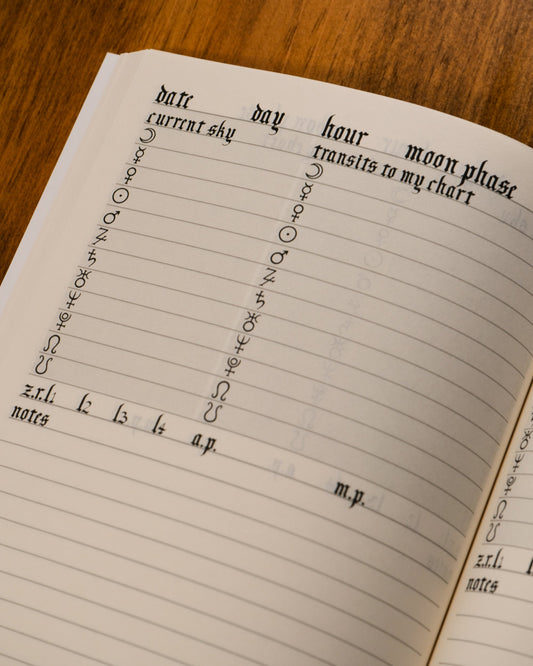 date day hour moon phase
current sky transits to my chart
☽ ☽
☿ ☿
♀ ♀
☉ ☉
♂ ♂
♃ ♃
♄ ♄
♅ ♅
♆ ♆
♇ ♇
☊ ☊
☋ ☋
z.r.l1 l2 l3 l4 a.p. m.p.
notes
♅
♆
♇
☊
☋
z.r.l1
notes